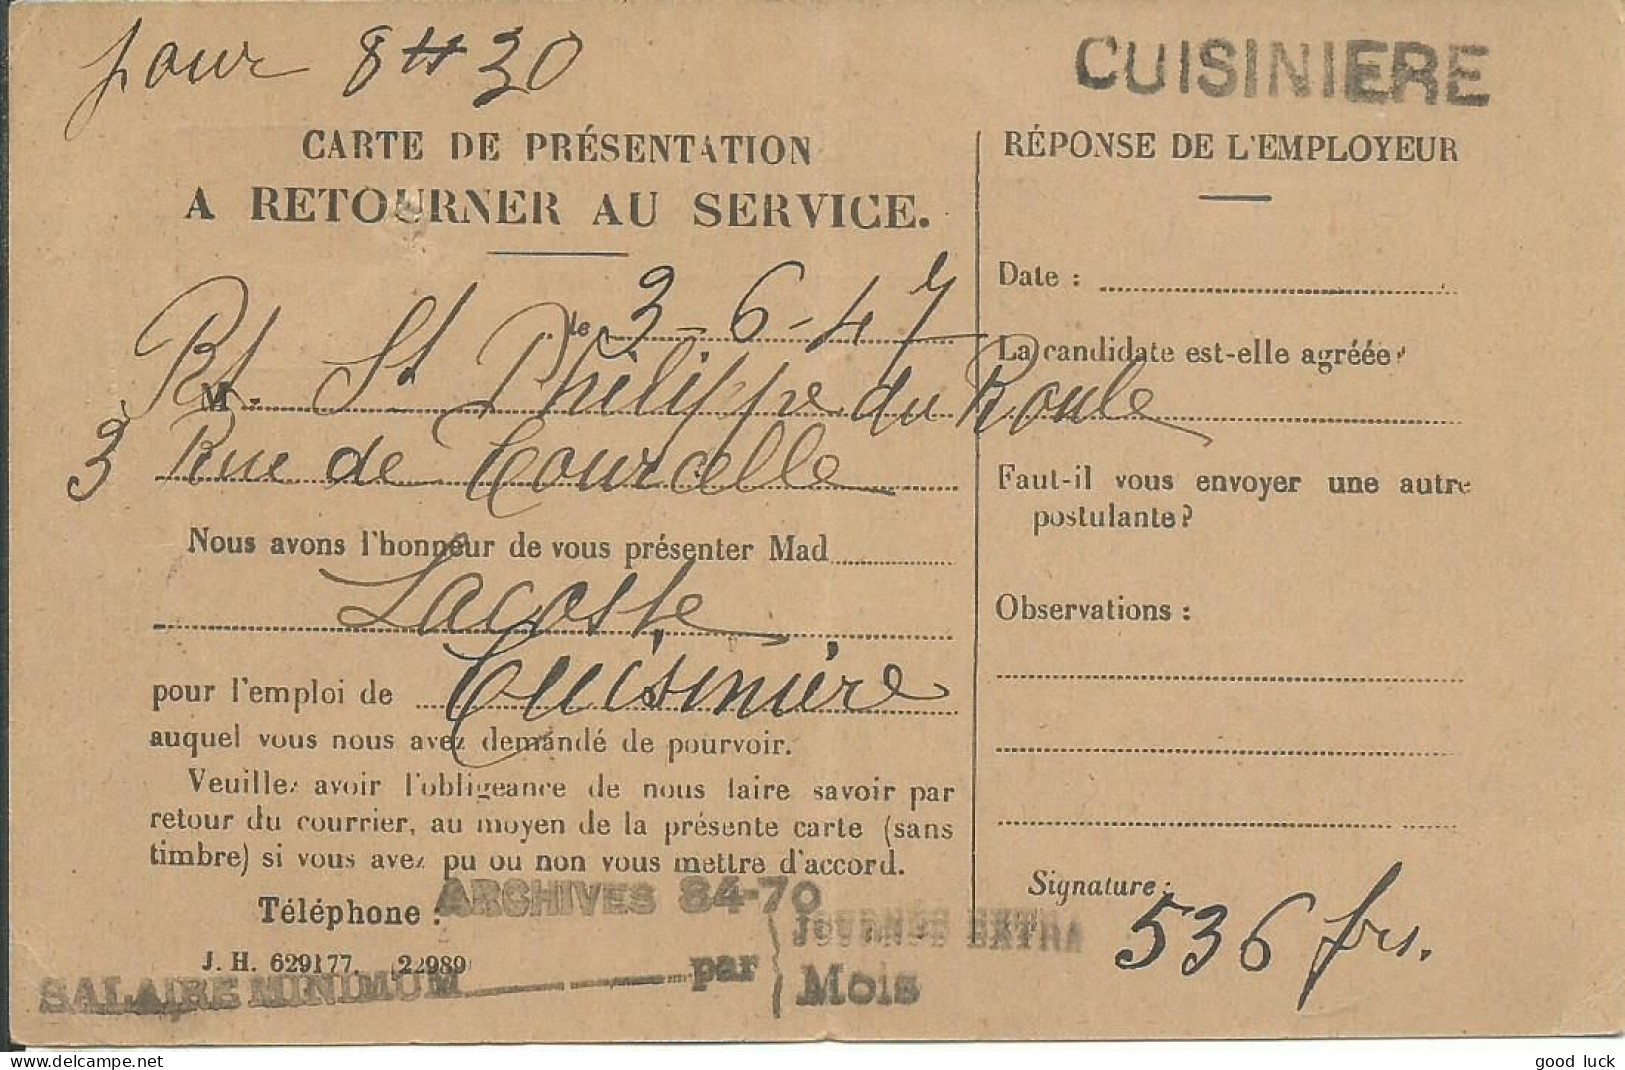 pour 8H30
CUISINIERE
CARTE DE PRÉSENTATION
A RETOURNER AU SERVICE.
le 3-6-47
Rt. St Philippe du Roule
M
3 Rue de Courcelle
Nous avons l'honneur de vous présenter Mad
Lacoste
pour l'emploi de Cuisinière
auquel vous nous avez demandé de pourvoir.
Veuillez avoir l'obligeance de nous faire savoir par
retour du courrier, au moyen de la présente carte (sans
timbre) si vous avez pu ou non vous mettre d'accord.
ARCHIVES 84-70
Téléphone :
J. H. 629177. 22989
SALAIRE MINIMUM par
JOURNÉE EXTRA
Mois
RÉPONSE DE L'EMPLOYEUR
Date :
La candidate est-elle agréée?
Faut-il vous envoyer une autre
postulante?
Observations :
Signature :
536 frs.
www.delcampe.net
good_luck